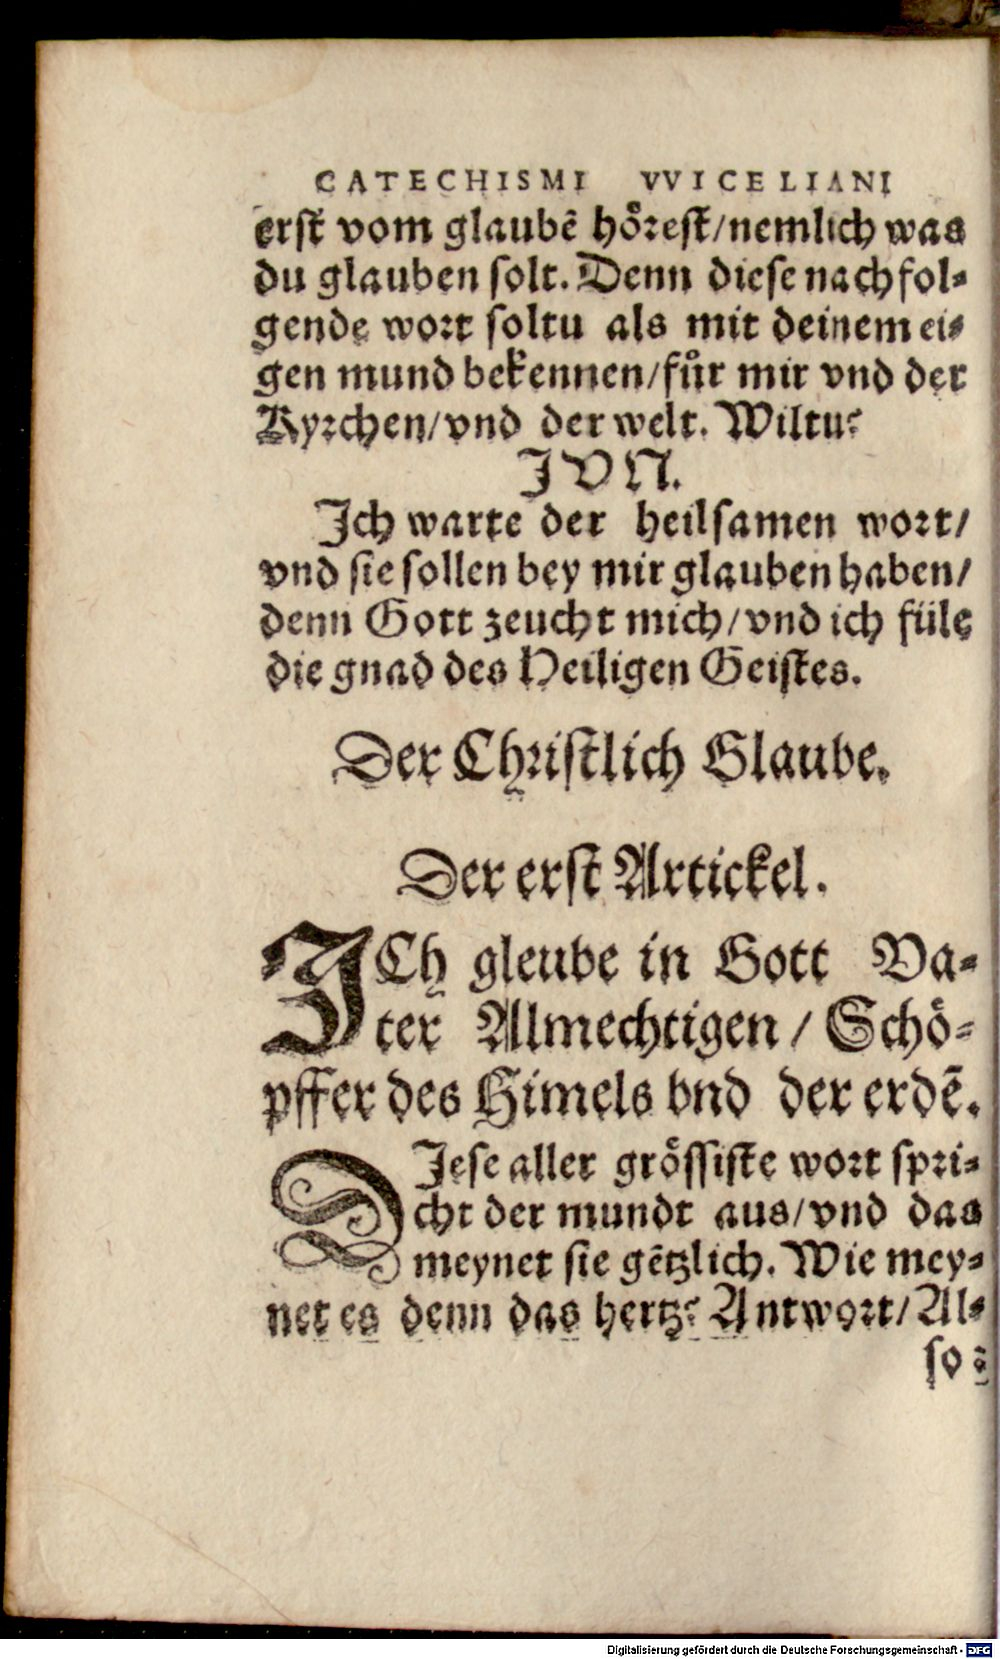 CATECHISMI VVICELIANI
erst vom glaubē hoͤrest/nemlich was
du glauben solt. Denn diese nachfol⸗
gende wort soltu als mit deinem ei⸗
gen mund bekennen/fuͤr mir vnd der
Kyrchen/vnd der welt. Wiltu?
JVN.
Jch warte der heilsamen wort/
vnd sie sollen bey mir glauben haben/
denn Gott zeucht mich/vnd ich füle
die gnad des Heiligen Geistes.
Der Christlich Glaube.
Der erst Artickel.
JCh gleube in Gott Va⸗
ter Almechtigen/Schö⸗
pffer des Himels vnd der erdē.
DJese aller groͤssiste wort spri⸗
cht der mundt aus/vnd das
meynet sie gētzlich. Wie mey⸗
net es denn das hertz? Antwort/Al⸗
so:
Digitalisierung gefördert durch die Deutsche Forschungsgemeinschaft - DFG